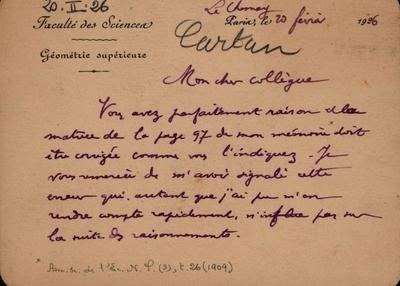 20.II.26
Faculté des Sciences
Géométrie supérieure
Le Chesnay
Paris, le 20 févr 1926
Cartan
Mon cher collègue
Vous avez parfaitement raison et la
matrice de la page 97 de mon mémoire doit
être corrigée comme vous l'indiquez. Je
vous remercie de m'avoir signalé cette
erreur qui, autant que j'ai pu m'en
rendre compte rapidement, n'influe pas sur
la suite des raisonnements.
* Ann. sc. de l'Ec. N. (3), t. 26 (1909)